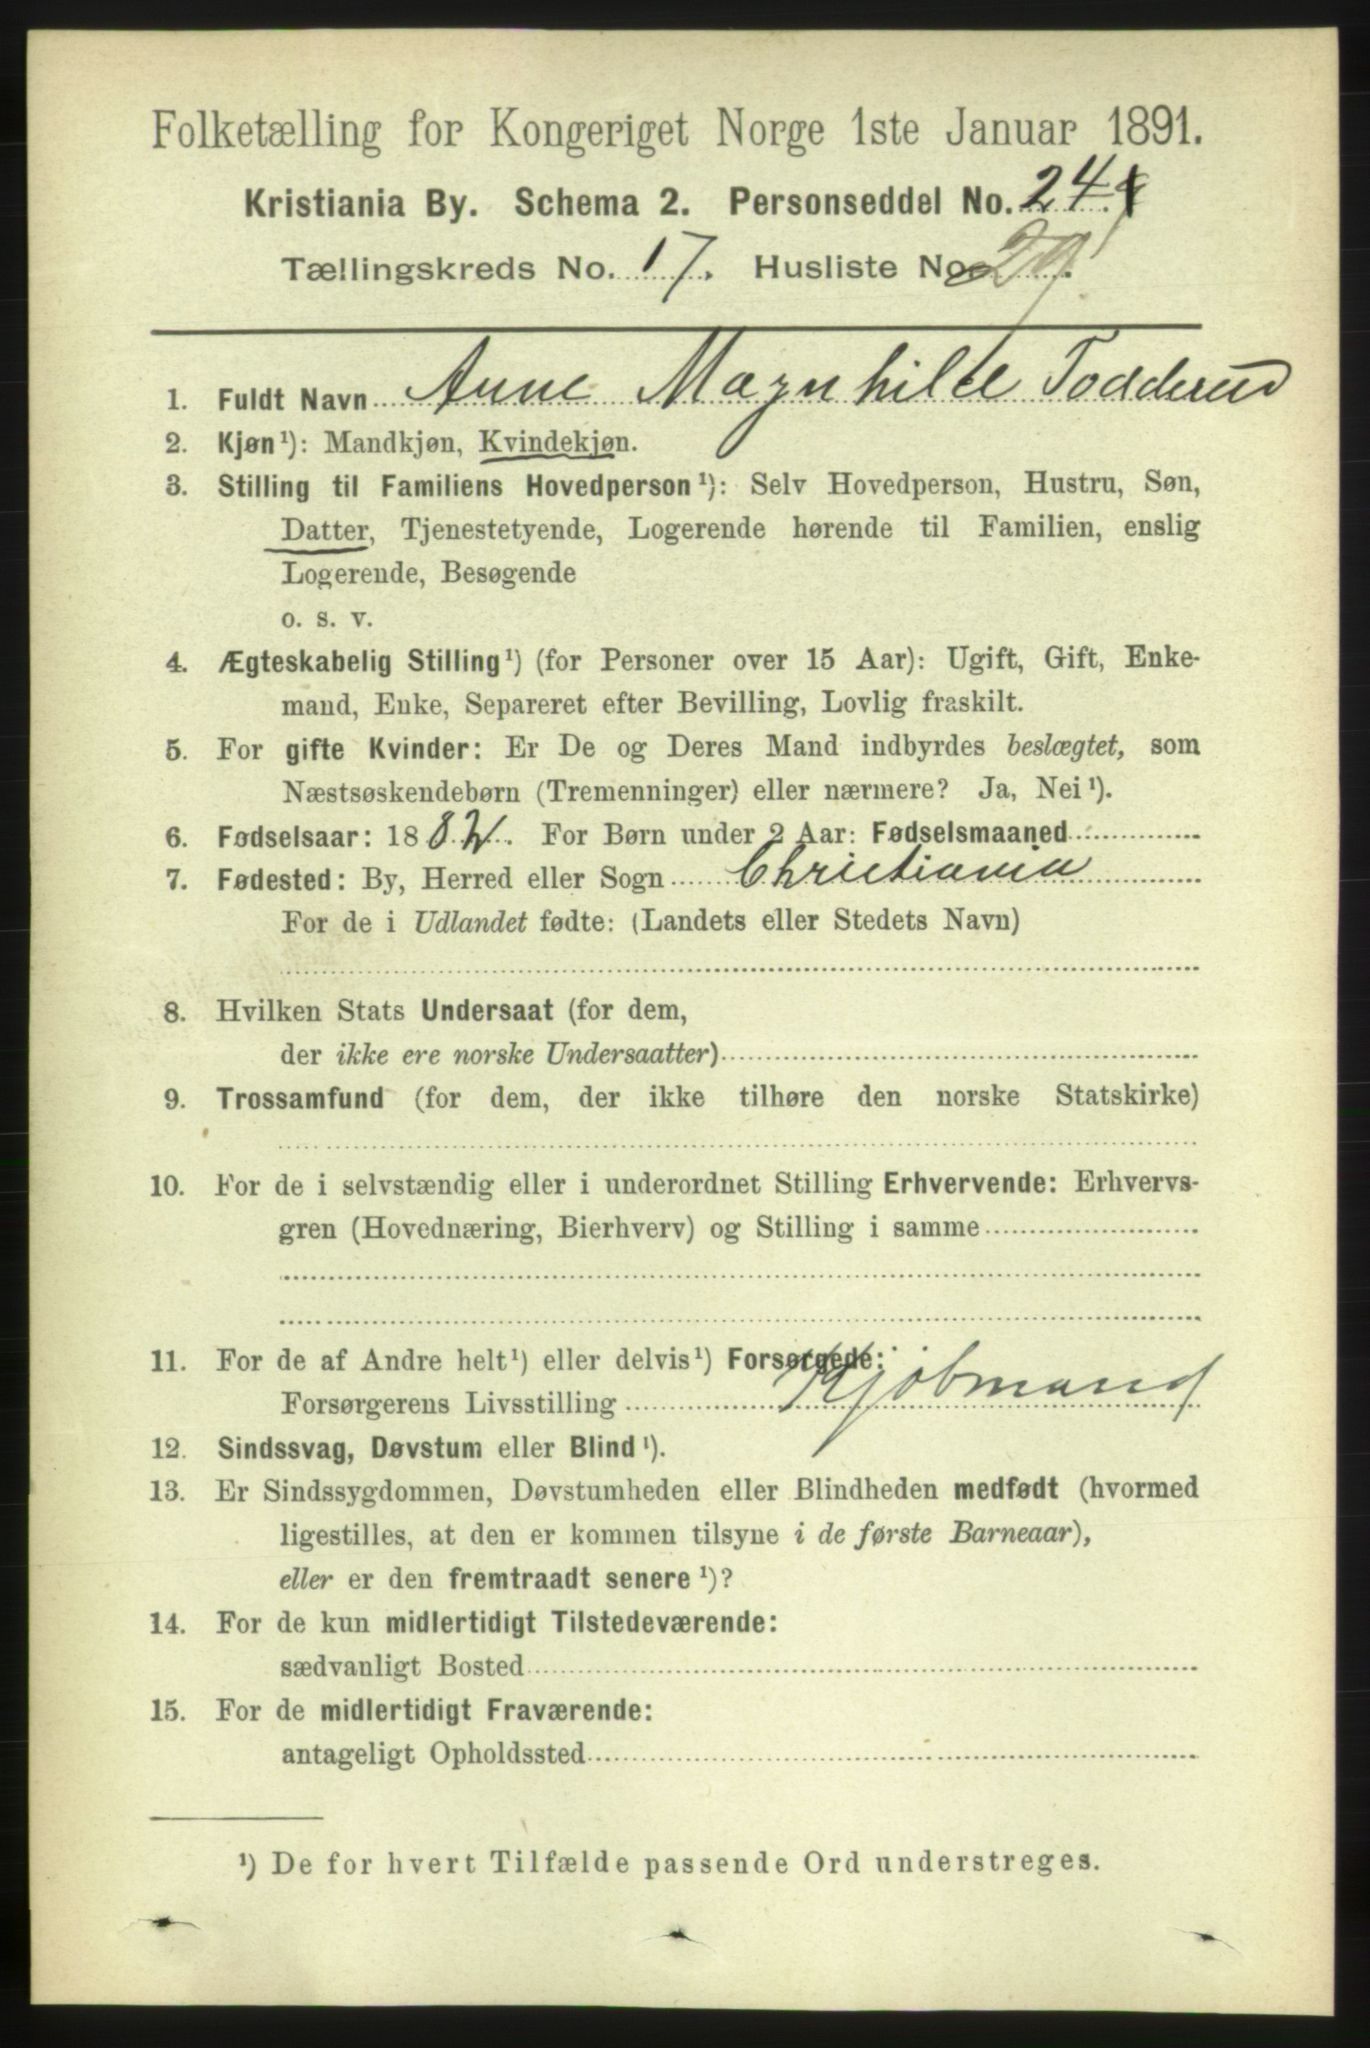 Folketælling for Kongeriget Norge 1ste Januar 1891.
Kristiania By. Schema 2. Personseddel No. 24
Tællingskreds No. 17. Husliste No. 29.
1. Fuldt Navn Anne Magnhilde Todderud
2. Kjøn¹): Mandkjøn, Kvindekjøn.
3. Stilling til Familiens Hovedperson¹): Selv Hovedperson, Hustru, Søn,
Datter, Tjenestetyende, Logerende hørende til Familien, enslig
Logerende, Besøgende
o. s. v.
4. Ægteskabelig Stilling¹) (for Personer over 15 Aar): Ugift, Gift, Enke-
mand, Enke, Separeret efter Bevilling, Lovlig fraskilt.
5. For gifte Kvinder: Er De og Deres Mand indbyrdes beslægtet, som
Næstsøskendebørn (Tremenninger) eller nærmere? Ja, Nei¹).
6. Fødselsaar: 1882. For Børn under 2 Aar: Fødselsmaaned
7. Fødested: By, Herred eller Sogn Christiania
For de i Udlandet fødte: (Landets eller Stedets Navn)
8. Hvilken Stats Undersaat (for dem,
der ikke ere norske Undersaatter)
9. Trossamfund (for dem, der ikke tilhøre den norske Statskirke)
10. For de i selvstændig eller i underordnet Stilling Erhvervende: Erhvervs-
gren (Hovednæring, Bierhverv) og Stilling i samme
11. For de af Andre helt¹) eller delvis¹) Forsørgede:
Forsørgerens Livsstilling Kjøbmand
12. Sindssvag, Døvstum eller Blind¹).
13. Er Sindssygdommen, Døvstumheden eller Blindheden medfødt (hvormed
ligestilles, at den er kommen tilsyne i de første Barneaar),
eller er den fremtraadt senere¹)?
14. For de kun midlertidigt Tilstedeværende:
sædvanligt Bosted
15. For de midlertidigt Fraværende:
antageligt Opholdssted
¹) De for hvert Tilfælde passende Ord understreges.